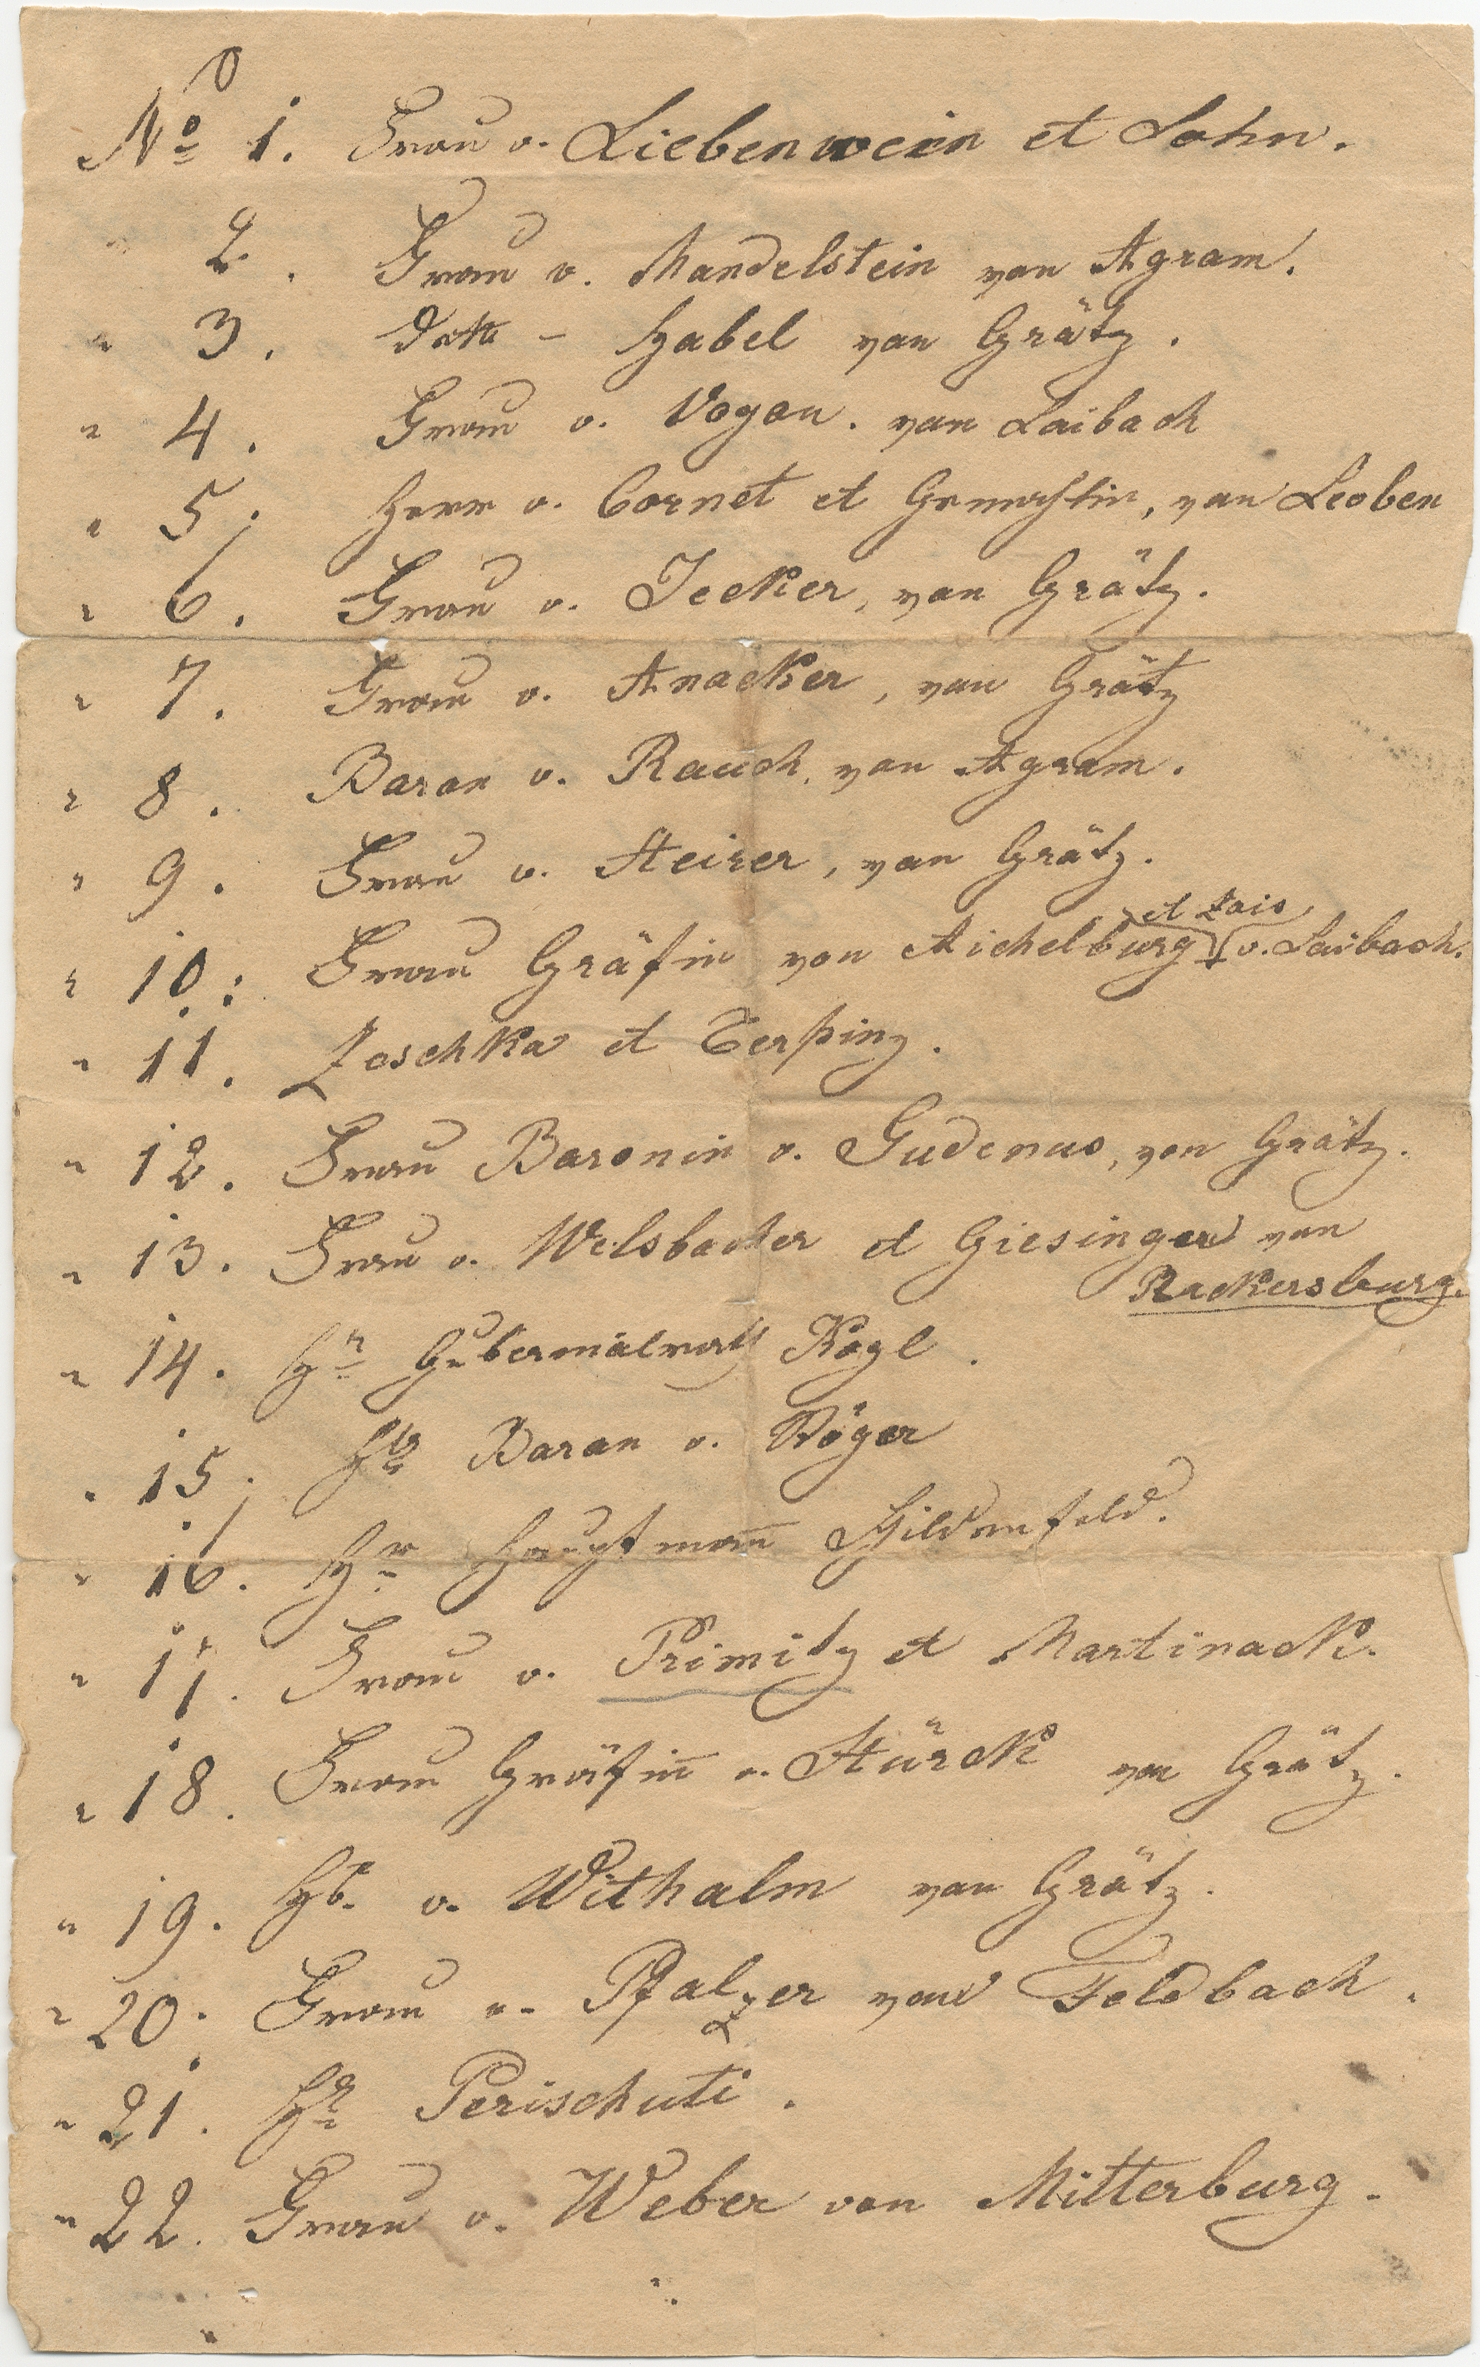 No 1. Frau v. Liebenwein et Sohn.
" 2. Frau v. Mandelstein von Agram.
" 3. Dtto – Habel von Grätz.
" 4. Frau v. Vogou. von Laibach
" 5. Herr v. Cornet et Gemahlin, von Leoben
" 6. Frau v. Jecker, von Grätz.
" 7. Frau v. Anacker, von Grätz
" 8. Baron v. Rauch, von Agram.
" 9. Frau v. Steirer, von Grätz.
et Zois
" 10. Frau Gräfin von Aichelburg v. Laibach.
" 11. Zeschka et Terpinz.
" 12. Frau Baronin v. Gudenus, von Grätz.
" 13. Frau v. Welsbacher et Giesinger von
Rackersburg.
" 14. Hr Gubernialrath Kogl.
" 15. Hr Baron v. Pöger
" 16. Hr Hauptmann Hildenfeld.
" 17. Frau v. Primitz et Martinack.
" 18. Frau Gräfin v. Stürck von Grätz.
" 19. Hr. v. Withalm von Grätz.
" 20. Frau v. Pfalzer von Feldbach.
" 21. Hr Perischuti.
" 22. Frau v. Weber von Mitterburg.